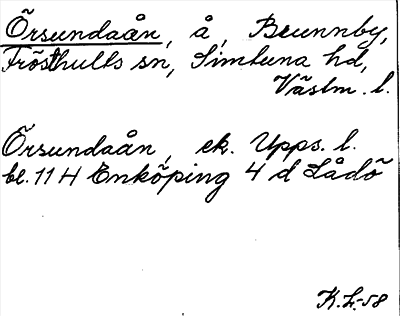 Örsundaån, å, Brunnby,
Frösthults sn, Simtuna hd,
Västm. l.
Örsundaån, ek. Upps. l.
bl. 11 H Enköping 4 d Lådö
K.L.-58